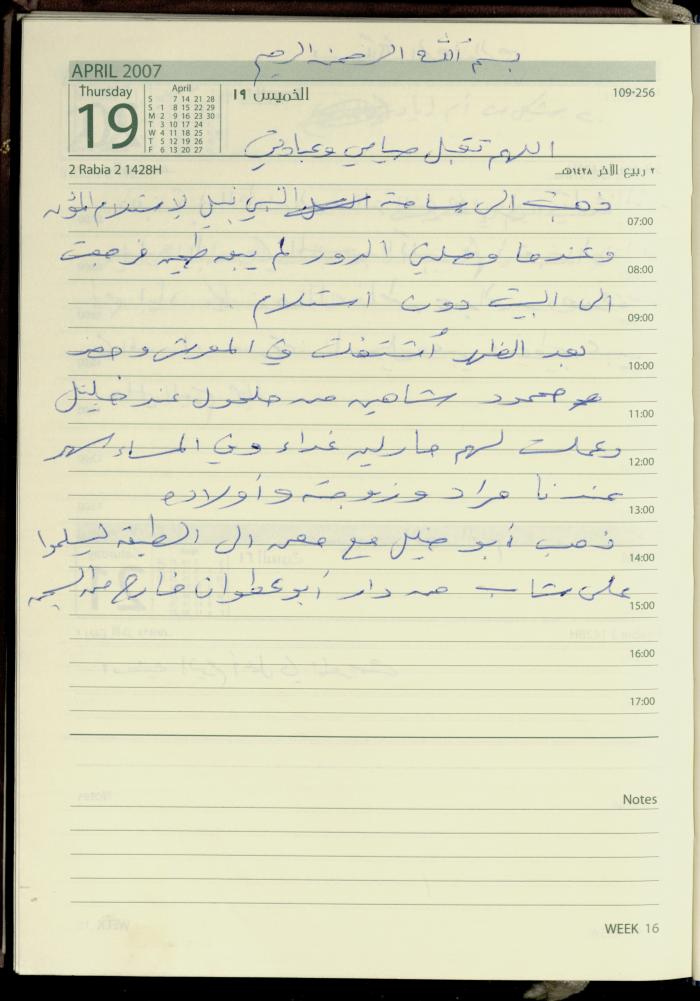 بسم الله الرحمن الرحيم
APRIL 2007
Thursday
19
April
S 7 14 21 28
S 1 8 15 22 29
M 2 9 16 23 30
T 3 10 17 24
W 4 11 18 25
T 5 12 19 26
F 6 13 20 27
الخميس ١٩
109-256
اللهم تقبل صيامي وعبادتي
2 Rabia 2 1428H
٢ ربيع الآخر ١٤٢٨هـ
ذهبت الى ساحة النبي لاستلام المؤن
07:00
وعندما وصلني الدور لم يبق فرجعت
08:00
الى البيت دون استلام
09:00
بعد الظهر أشتغلت في وحضر
10:00
محمود شاهين من حلحول عند خليل
11:00
وعملت لهم غداء وفي المساء سهر
12:00
عندنا مراد وزوجته وأولاده
13:00
ذهب أبو خليل مع الى ليسلموا
14:00
على شاب من دار أبو عطوان خارج من السجن
15:00
16:00
17:00
Notes
WEEK 16